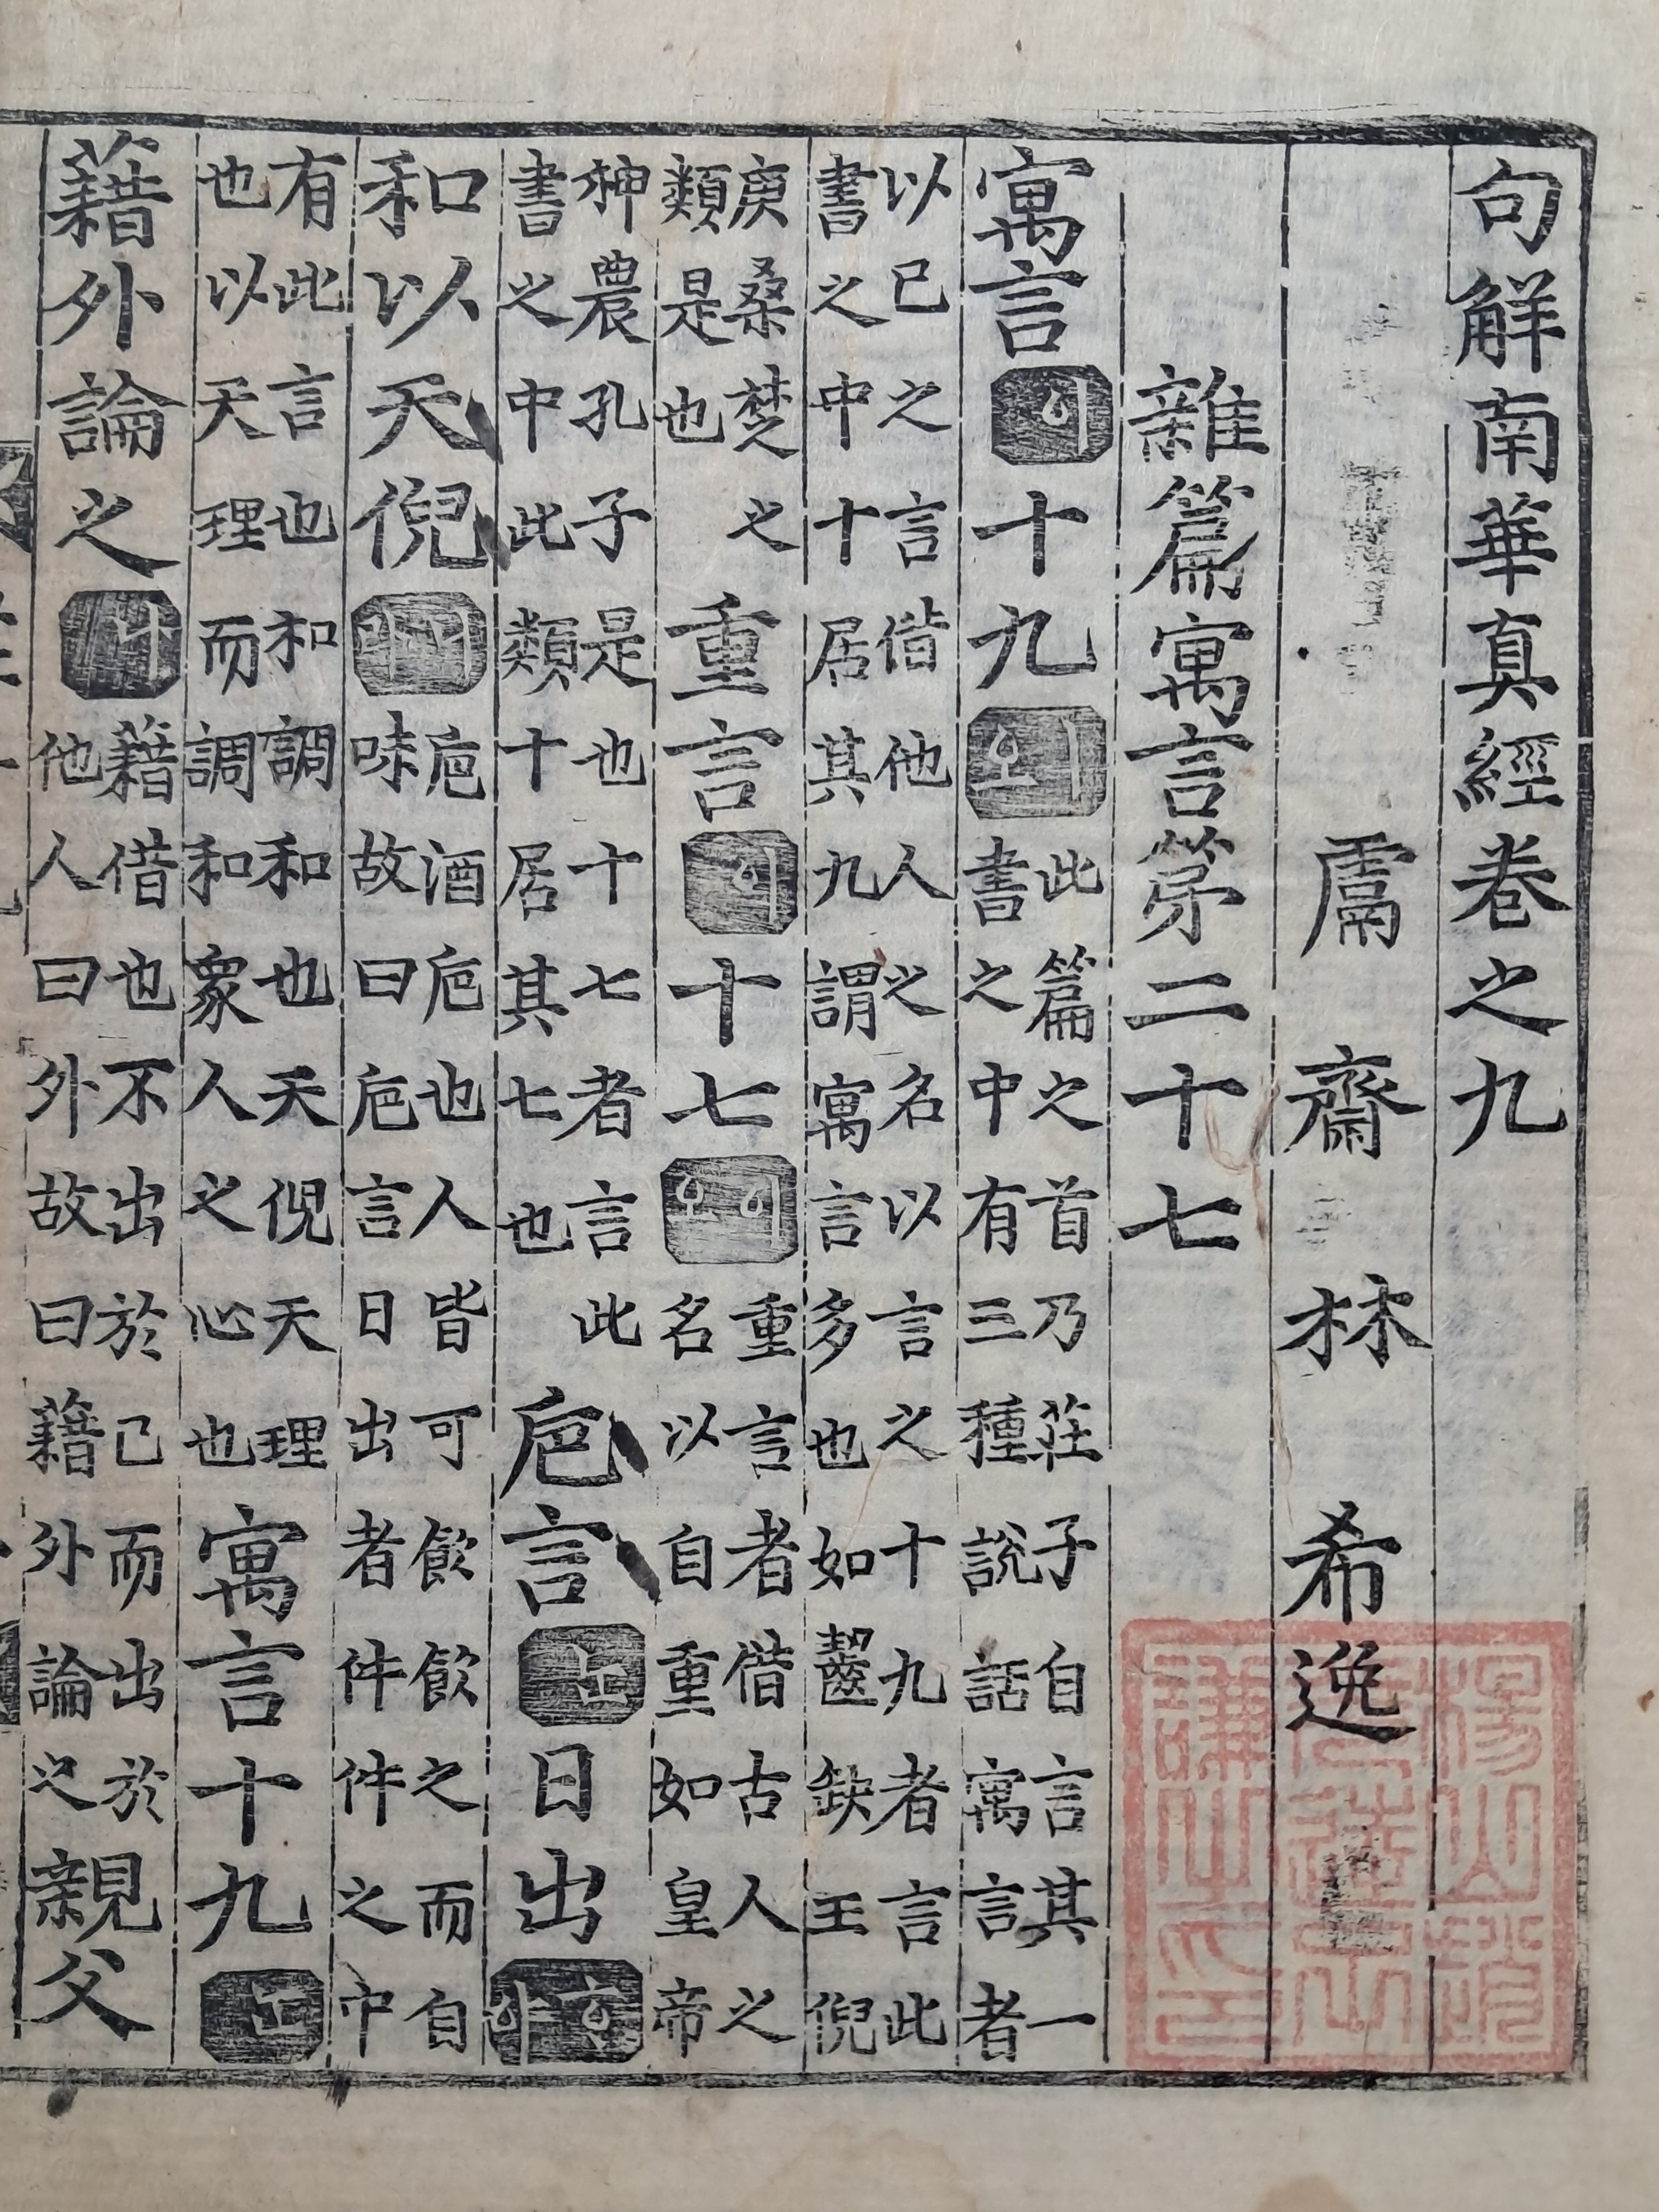 句解南華真經卷之九
鬳齋林希逸
雜篇寓言第二十七
寓言이十九ㅣ오
此篇之首乃莊子自言其一
書之中有三種說話寓言者
以己之言借他人之名以言之十九者言此
書之中十居其九謂寓言多也如齧缺王倪
庚桑楚之
類是也
重言이十七이오
重言者借古人之
名以自重如皇帝
神農孔子是也十七者言此
書之中此類十居其七也
巵言日出
和以天倪
巵酒巵也人皆可飮飮之而自
味故曰巵言日出者件件之中
有此言也和調和也天倪天理
也以天理而調和衆人之心也
寓言十九
藉外論之
藉借也不出於己而出於
他人曰外故曰藉外論之
親父